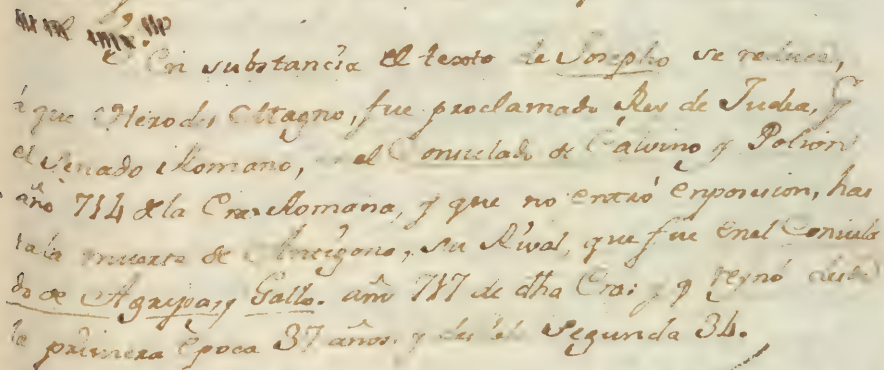 En substancia el texto de Josepho se reduce,
á que Herodes Magno, fue proclamado Rey de Judea, P.
el Senado Romano, el Consulado de Calvino y Polion
año 714 de la Era Romana, y que no entró enposesion, has
tala muerte de Antigono, su Rival, que fue enel Consula
do de Agripa, y Gallo. año 717 de dha Era: y reynó desde
la primera epoca 37 años. y desde la segunda 34.